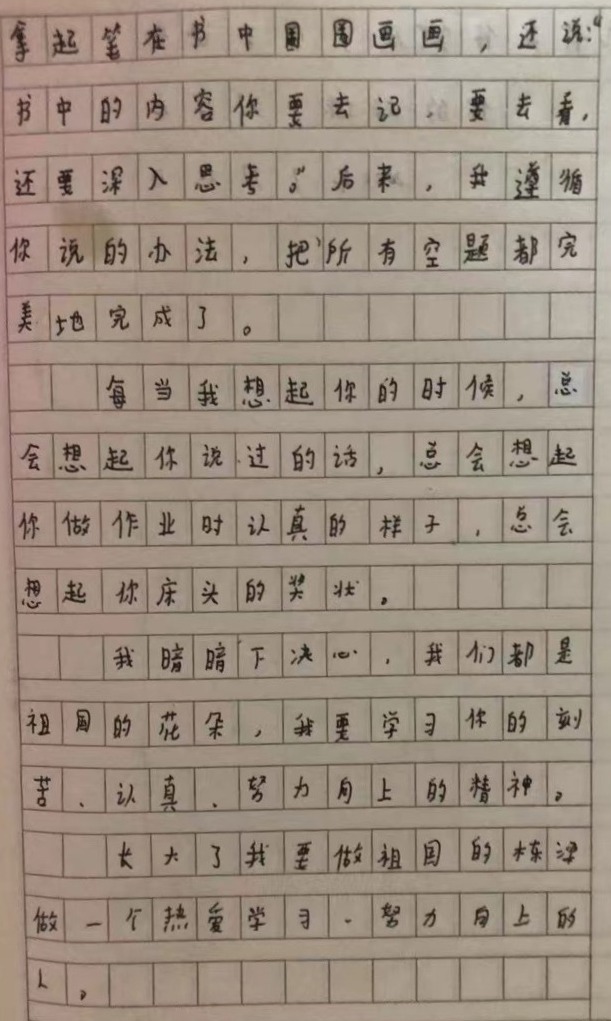 拿起笔在书中圈圈画画，还说：“
书中的内容你要去记、要去看，
还要深入思考。”后来，我遵循
你说的办法，把所有空题都完
美地完成了。
每当我想起你的时候，总
会想起你说过的话，总会想起
你做作业时认真的样子，总会
想起你床头的奖状。
我暗暗下决心，我们都是
祖国的花朵，我要学习你的刻
苦、认真、努力向上的精神。
长大了我要做祖国的栋梁
做一个热爱学习、努力向上的
人。